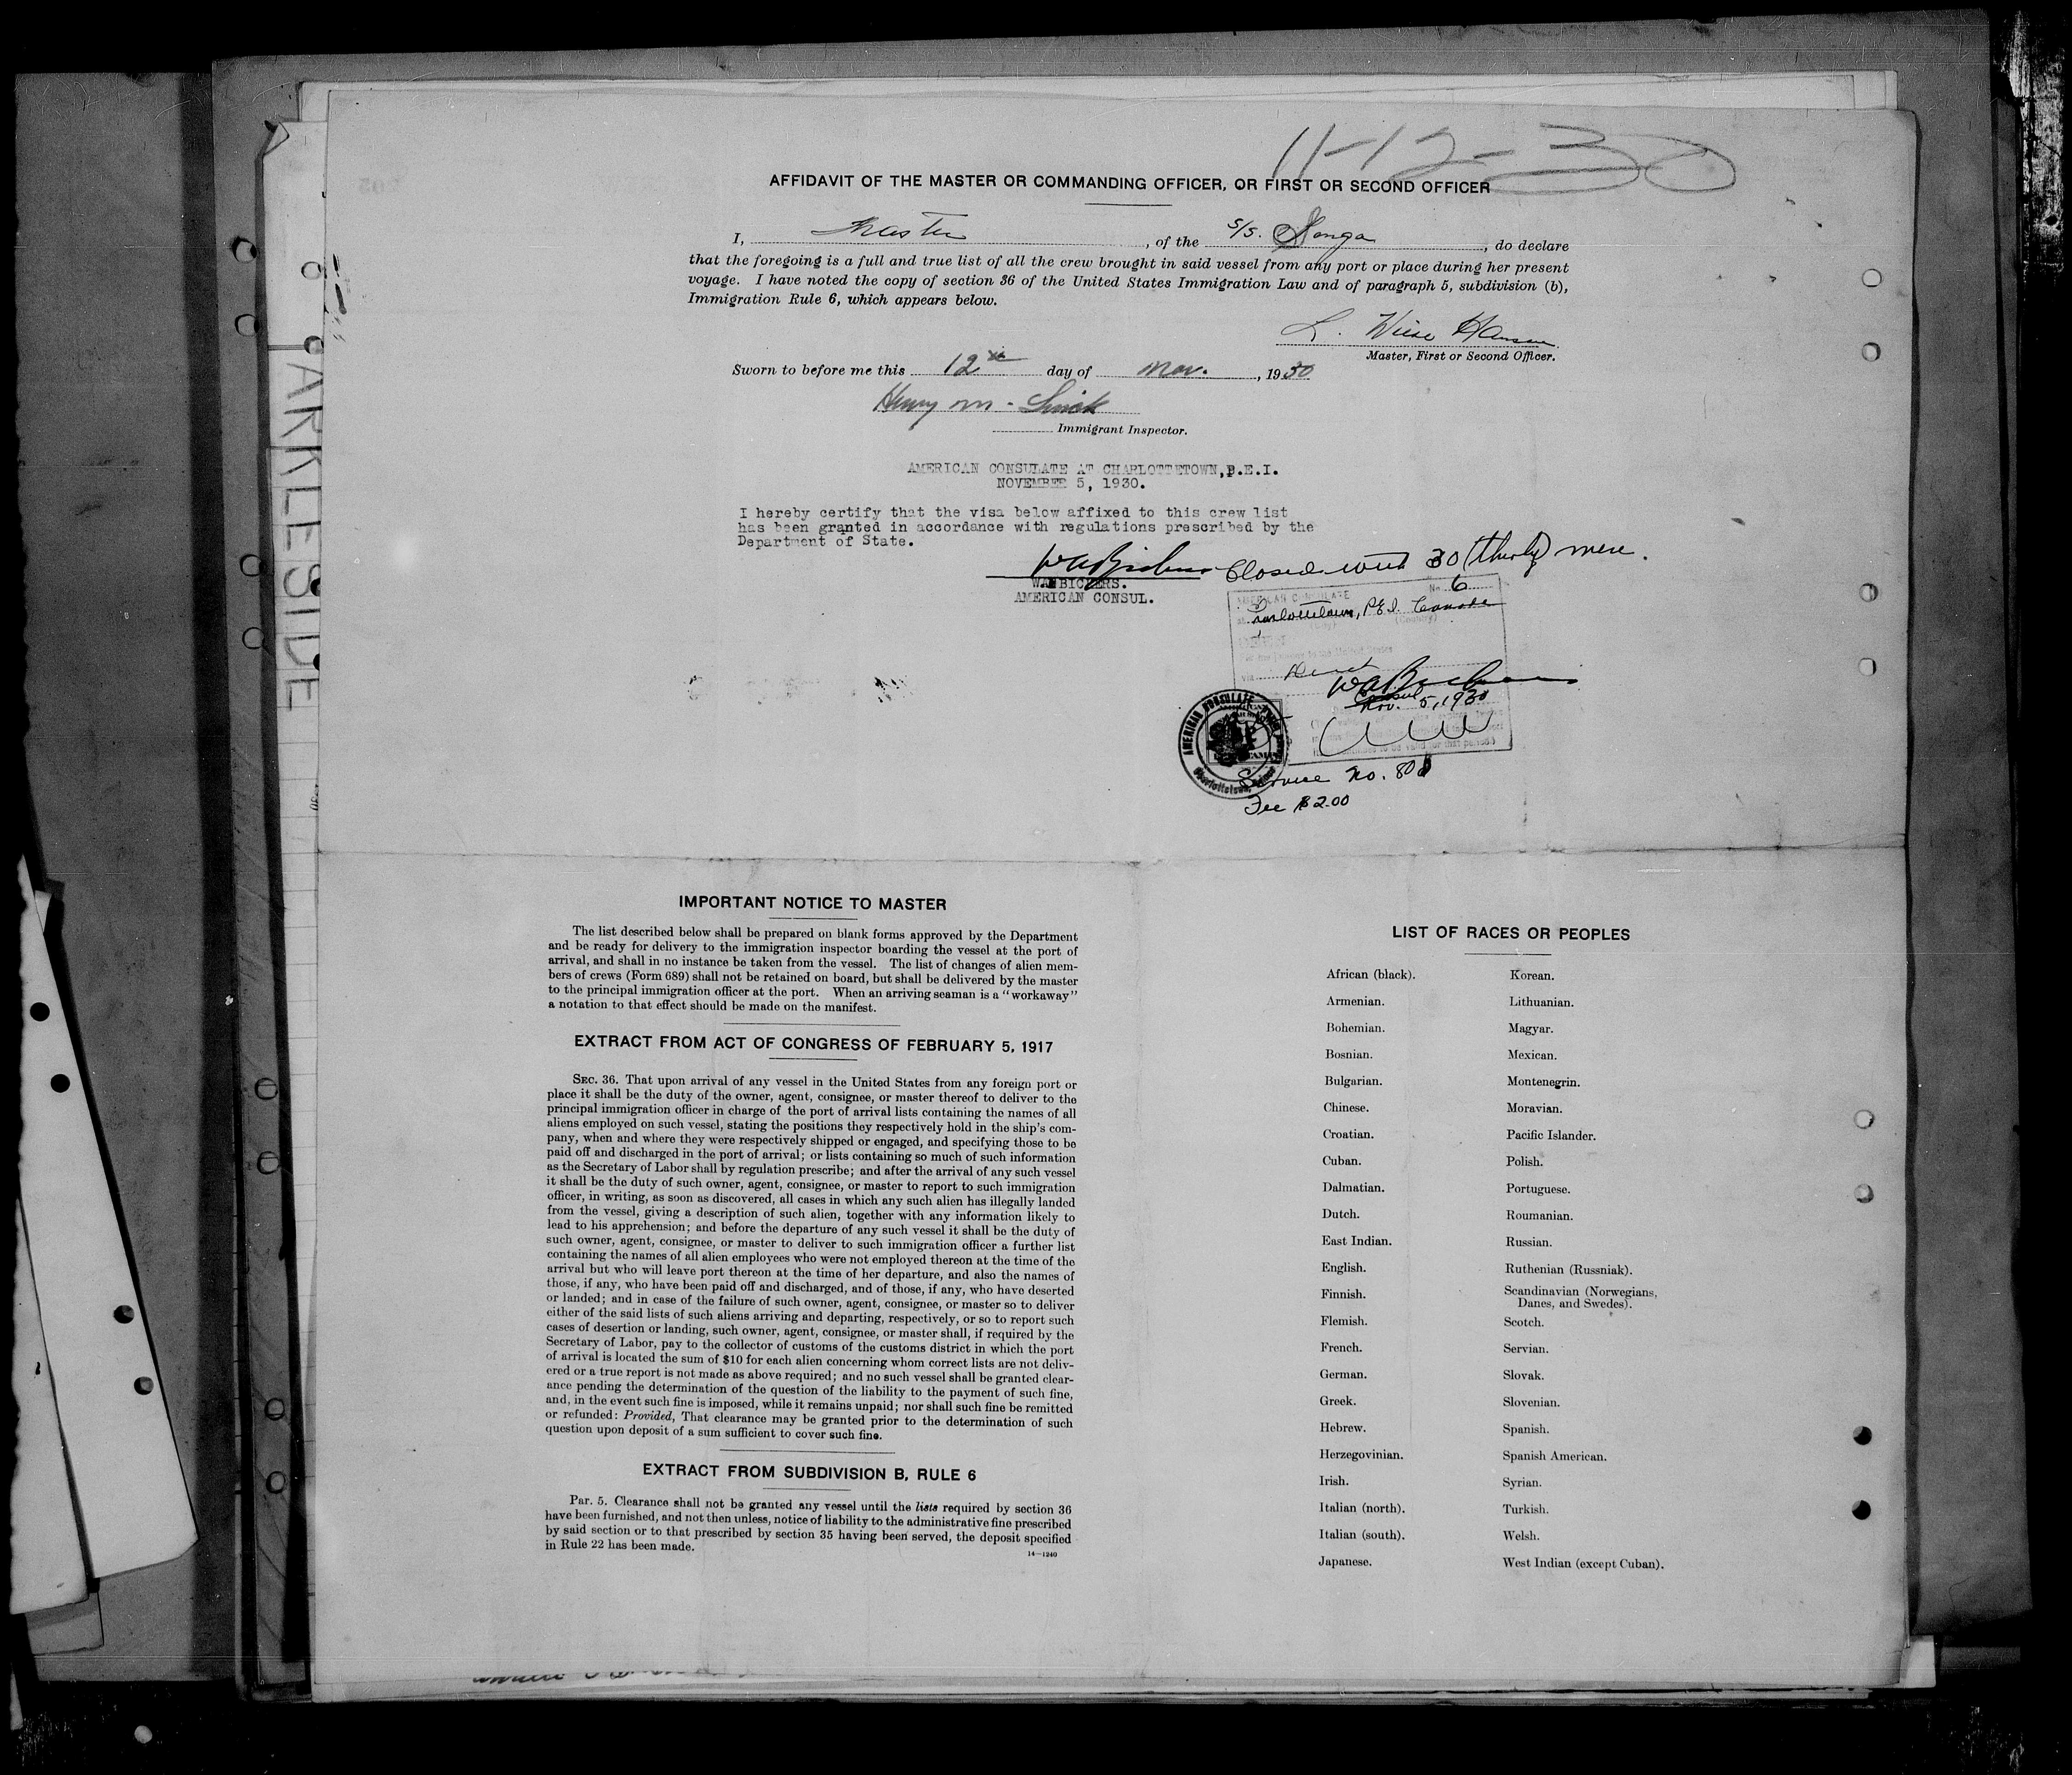 11-12-30
AFFIDAVIT OF THE MASTER OR COMMANDING OFFICER, OR FIRST OR SECOND OFFICER
I, Master, of the S/S. Nanga, do declare
that the foregoing is a full and true list of all the crew brought in said vessel from any port or place during her present
voyage. I have noted the copy of section 36 of the United States Immigration Law and of paragraph 5, subdivision (b),
Immigration Rule 6, which appears below.
L. Wiese Hansen
Master, First or Second Officer.
Sworn to before me this 12th day of Nov., 1930
Henry M.
Immigrant Inspector.
AMERICAN CONSULATE AT CHARLOTTETOWN, P.E.I.
NOVEMBER 5, 1930.
I hereby certify that the visa below affixed to this crew list
has been granted in accordance with regulations prescribed by the
Department of State.
WABickers Closed with 30 (thirty) men.
WA BICKERS.
AMERICAN CONSUL.
AMERICAN CONSULATE No. 6
at Charlottetown, P.E.I. Canada
(Country)
For the journey to the United States
Via Direct
WABickers
Consul
Nov. 5, 1930
AMERICAN CONSULATE
Service No. 801
Fee $2.00
ARKLESIDE
IMPORTANT NOTICE TO MASTER
The list described below shall be prepared on blank forms approved by the Department
and be ready for delivery to the immigration inspector boarding the vessel at the port of
arrival, and shall in no instance be taken from the vessel. The list of changes of alien mem-
bers of crews (Form 689) shall not be retained on board, but shall be delivered by the master
to the principal immigration officer at the port. When an arriving seaman is a "workaway"
a notation to that effect should be made on the manifest.
EXTRACT FROM ACT OF CONGRESS OF FEBRUARY 5, 1917
SEC. 36. That upon arrival of any vessel in the United States from any foreign port or
place it shall be the duty of the owner, agent, consignee, or master thereof to deliver to the
principal immigration officer in charge of the port of arrival lists containing the names of all
aliens employed on such vessel, stating the positions they respectively hold in the ship's com-
pany, when and where they were respectively shipped or engaged, and specifying those to be
paid off and discharged in the port of arrival; or lists containing so much of such information
as the Secretary of Labor shall by regulation prescribe; and after the arrival of any such vessel
it shall be the duty of such owner, agent, consignee, or master to report to such immigration
officer, in writing, as soon as discovered, all cases in which any such alien has illegally landed
from the vessel, giving a description of such alien, together with any information likely to
lead to his apprehension; and before the departure of any such vessel it shall be the duty of
such owner, agent, consignee, or master to deliver to such immigration officer a further list
containing the names of all alien employees who were not employed thereon at the time of the
arrival but who will leave port thereon at the time of her departure, and also the names of
those, if any, who have been paid off and discharged, and of those, if any, who have deserted
or landed; and in case of the failure of such owner, agent, consignee, or master so to deliver
either of the said lists of such aliens arriving and departing, respectively, or so to report such
cases of desertion or landing, such owner, agent, consignee, or master shall, if required by the
Secretary of Labor, pay to the collector of customs of the customs district in which the port
of arrival is located the sum of $10 for each alien concerning whom correct lists are not deliv-
ered or a true report is not made as above required; and no such vessel shall be granted clear-
ance pending the determination of the question of the liability to the payment of such fine,
and, in the event such fine is imposed, while it remains unpaid; nor shall such fine be remitted
or refunded: Provided, That clearance may be granted prior to the determination of such
question upon deposit of a sum sufficient to cover such fine.
EXTRACT FROM SUBDIVISION B, RULE 6
Par. 5. Clearance shall not be granted any vessel until the lists required by section 36
have been furnished, and not then unless, notice of liability to the administrative fine prescribed
by said section or to that prescribed by section 35 having been served, the deposit specified
in Rule 22 has been made.
14—1240
LIST OF RACES OR PEOPLES
African (black). Korean.
Armenian. Lithuanian.
Bohemian. Magyar.
Bosnian. Mexican.
Bulgarian. Montenegrin.
Chinese. Moravian.
Croatian. Pacific Islander.
Cuban. Polish.
Dalmatian. Portuguese.
Dutch. Roumanian.
East Indian. Russian.
English. Ruthenian (Russniak).
Finnish. Scandinavian (Norwegians,
Danes, and Swedes).
Flemish. Scotch.
French. Servian.
German. Slovak.
Greek. Slovenian.
Hebrew. Spanish.
Herzegovinian. Spanish American.
Irish. Syrian.
Italian (north). Turkish.
Italian (south). Welsh.
Japanese. West Indian (except Cuban).